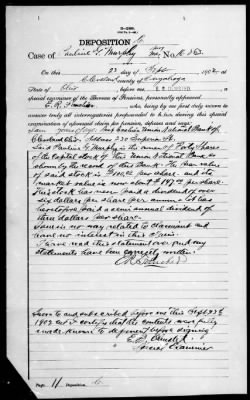 DEPOSITION
Case of Pauline E. Murphy, No.
On this 23 day of Sept, 190, at
Cleveland, county of Cuyahoga
State of Ohio, before me, E. B. Olmsted, a
special examiner of the Bureau of Pensions, personally appeared
, who, being by me first duly sworn to
answer truly all interrogatories propounded to him during this special
examination of aforesaid claim for pension, deposes and says:
National Bank of
Cleveland Ohio. Address, Superior St.
Said Pauline E. Murphy is the owner of Forty Shares
of the Capital stock of this National Bank as
shown by the records of this Bank. The par value
of said stock is $100.00 per share and its
market value is now about per share.
This stock has never paid a dividend of over
six dollars per share per annum. It has
heretofore paid a semi annual dividend of
three dollars per share.
I am in no way related to claimant and
have no interest in this claim.
I have read this statement over and my
statements have been correctly written.
Sworn to and subscribed before me this Sept 23d
1902 and I certify that the contents were fully
made known to deponent before signing
E. B. Olmsted
Special Examiner
Page 11 Deposition